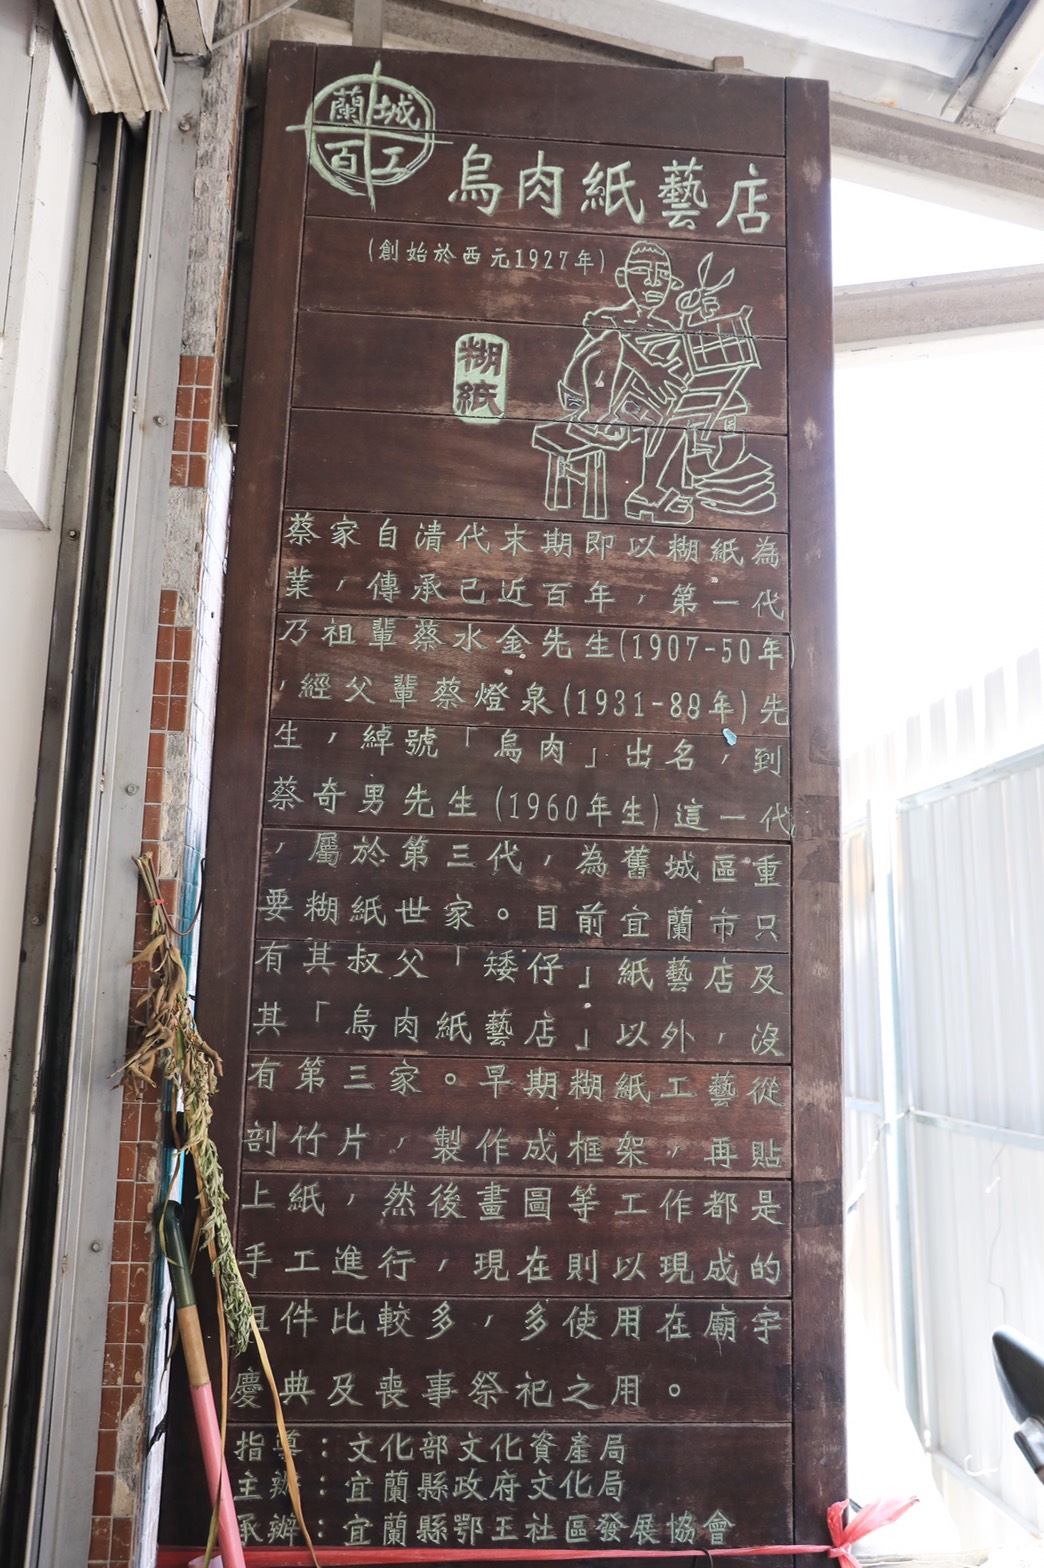 蘭城
百工
烏肉紙藝店
(創始於西元1927年)
糊紙
蔡家自清代末期即以糊紙為
業，傳承已近百年，第一代
乃祖輩蔡水金先生(1907-50年)
，經父輩蔡燈泉(1931-88年)先
生，綽號「烏肉」出名，到
蔡奇男先生(1960年生)這一代
，屬於第三代，為舊城區重
要糊紙世家。目前宜蘭市只
有其叔父「矮仔」紙藝店及
其「烏肉紙藝店」以外，沒
有第三家。早期糊紙工藝從
剖竹片，製作成框架，再貼
上紙，然後畫圖等工作都是
手工進行，現在則以現成的
件比較多，多使用在廟宇
慶典及喪事祭祀之用。
指導：文化部文化資產局
主辦：宜蘭縣政府文化局
承辦：宜蘭縣鄂王社區發展協會